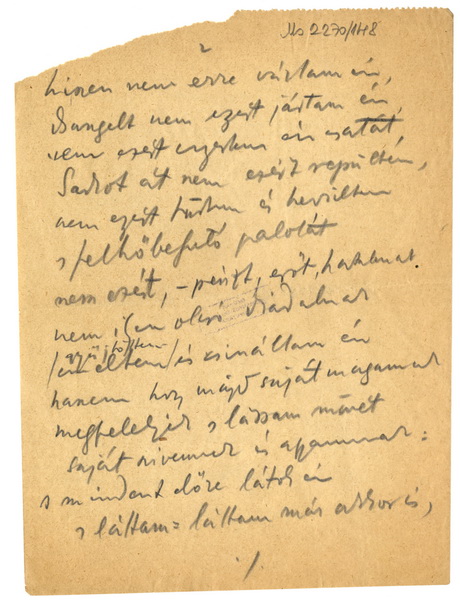 Ms 2270/148
2
hiszen nem erre vártam én,
nem ezért jártam én
nem ezért nyertem én csatát,
át nem ezért repültem,
nem ezért tűrtem és hevültem
s felhőbefutó palotát
nem ezért, – pénzt, erőt, hatalmat
nem ily olcsó diadalmat
én és csináltam én
hanem hogy majd saját magamnak
megfeleljek s lássam művét
saját szívemnek és agyamnak:
s mindent előre látok én
s láttam: láttam már akkor is,
./.